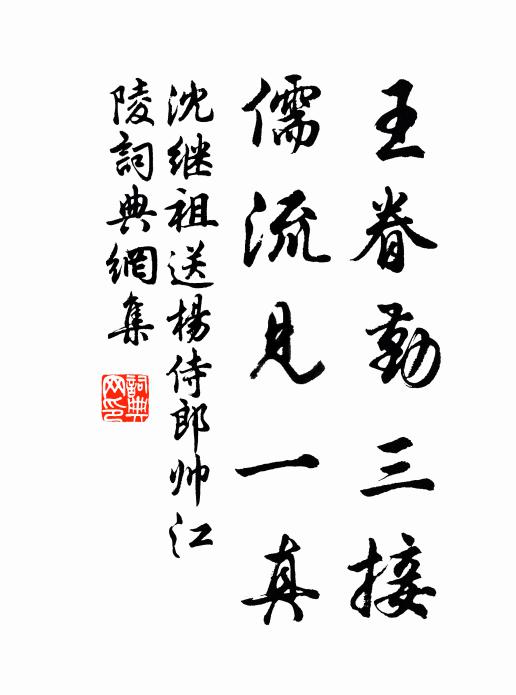 王眷勤三接
儒流見一真
沈继祖送楊侍郎帅江
陵詞典網集
詞典网印